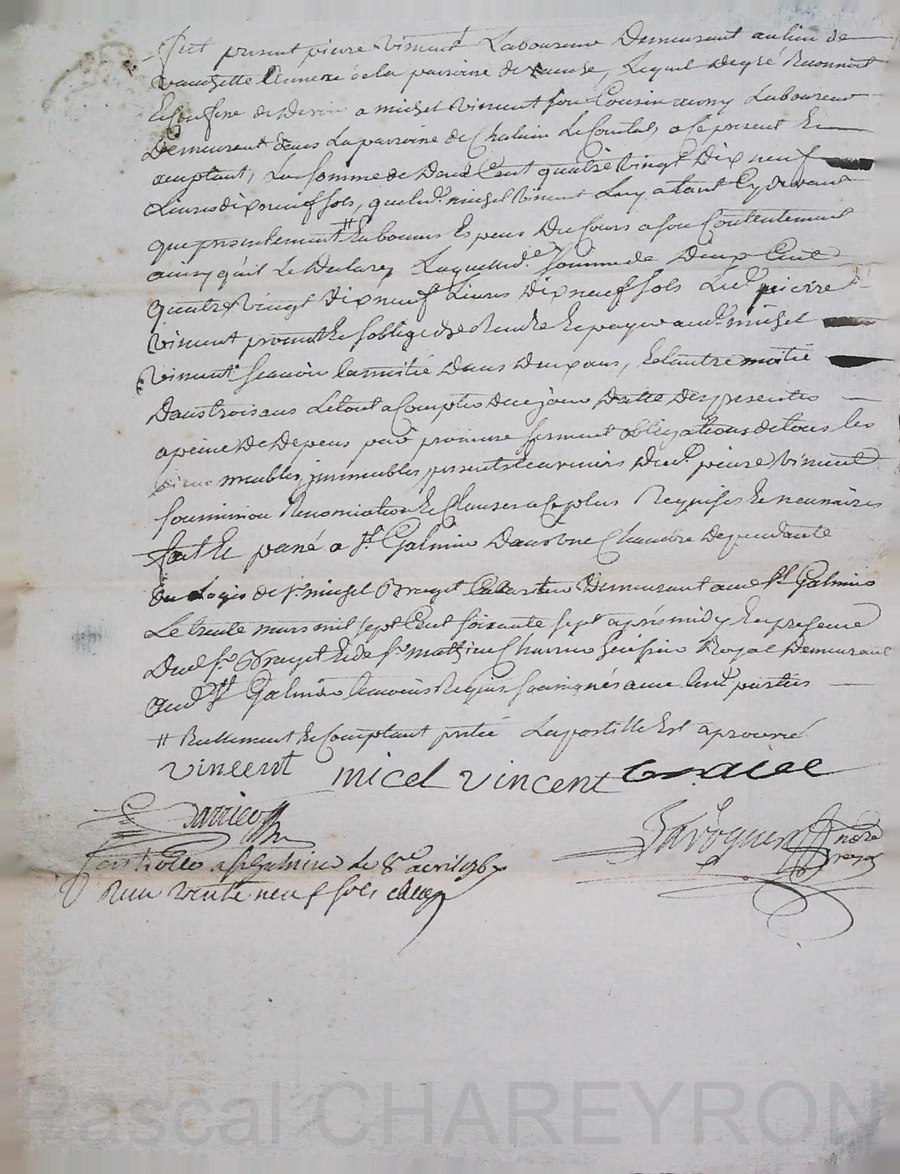 fut present pierre Vincent Laboureur Demeurant au lieu de
annexe de la paroisse de lequel de gré Reconnoit
Et Confesse de Devoir a michel Vincent son Cousin aussy Laboureur
Demeurant dans La paroisse de Chalain Le Comtal, a Ce present Et
acceptant, La somme de Deux Cent quatre Vingt Dix neuf
Livres dix neuf sols, que led. michel Vincent Luy a tant Cy devant
que presentement # En bonnes Especes Du Cours a son Contentement
ainsy qu'il Le Declare, Laquelle d.e somme de Deux Cent
quatre Vingt Dix neuf Livres Dix neuf sols Led. pierre
Vincent promet Et s'oblige de Rendre Et payer aud. michel
Vincent scavoir la moitié Dans Deux ans, Et l'autre moitié
Dans trois ans Le tout a Compter De ce jour Datte Des presentes
a peine De Depens par promesse serment obligations de tous les
biens meubles, immeubles, presents et avenirs Dud. pierre Vincent
soumission Renonciation Et Clauses a ce plus Requises Et necessaires
fait Et passé a St. Galmier Dans une Chambre Dependante
du Logis de Sr. michel Demeurant aud. St. Galmier
Le trente mars mil sept Cent soixante sept aprés midy En presence
Dud. Sr. Et de Sr. Royal Demeurant
aud. St. Galmier temoins Requis soussignés avec lesd. parties
# Reellement Et Comptant preté Lapostille Est aprouvé
vincent micel vincent
nore
royal
Controllé a St Galmier le 8e avril 1767
Recu vente neuf sols
Pascal CHAREYRON